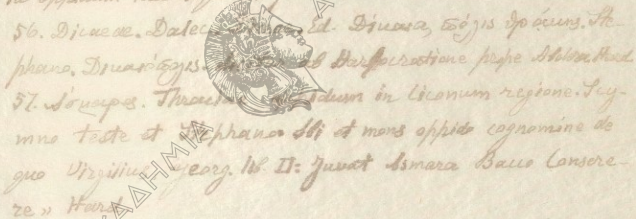 56. Dicaeae. Dalec id. Dicaea, πόλις Θράκης. Ste-
phano. ab Harpocratione prope Abdera
57. Ἴσμαρος. Thraciae oppidum in Ciconum regione. Scy-
mno teste et Stephano. Ibi et mons oppido cognomine de
quo Virgilius Georg. lib II: Juvat Ismara Baco Consere-
re » Hard
ΑΔΗΜΙΑ